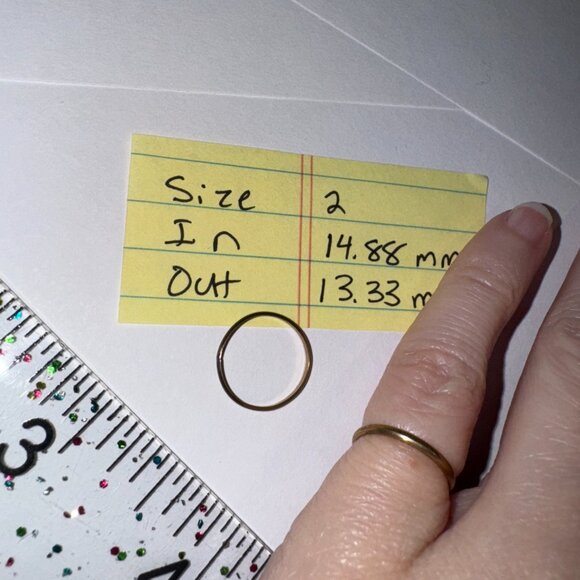 Size 2
In 14.88 mm
Out 13.33 m
3